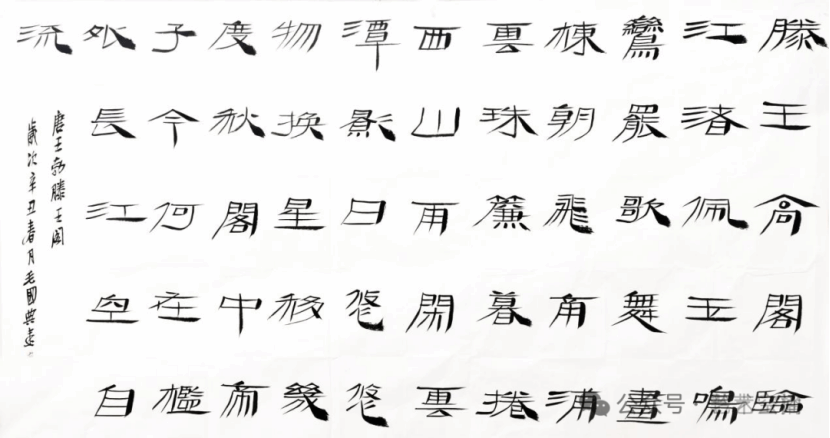 滕王高閣臨
江渚佩玉鳴
鸞罷歌舞畫
棟朝飛南浦
雲珠簾暮捲
西山雨閑雲
潭影日悠悠
物換星移幾
度秋閣中帝
子今何在檻
外長江空自
流
唐王勃滕王閣
歲次辛丑春月毛國典書
公众号